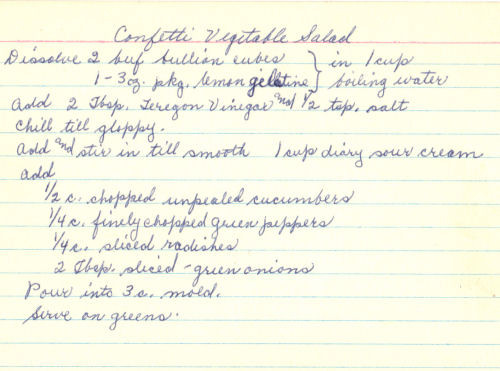 Confetti Vegetable Salad
Dissolve 2 beef bullion cubes } in 1 cup
1 - 3 oz. pkg. lemon gelatine } boiling water
Add 2 Tbsp. Teregon Vinegar and 1/2 tsp. salt
Chill till gloppy.
Add and stir in till smooth 1 cup diary sour cream
Add
1/2 c. chopped unpealed cucumbers
1/4 c. finely chopped green peppers
1/4 c. sliced radishes
2 Tbsp. sliced - green onions
Pour into 3 c. mold.
Serve on greens.